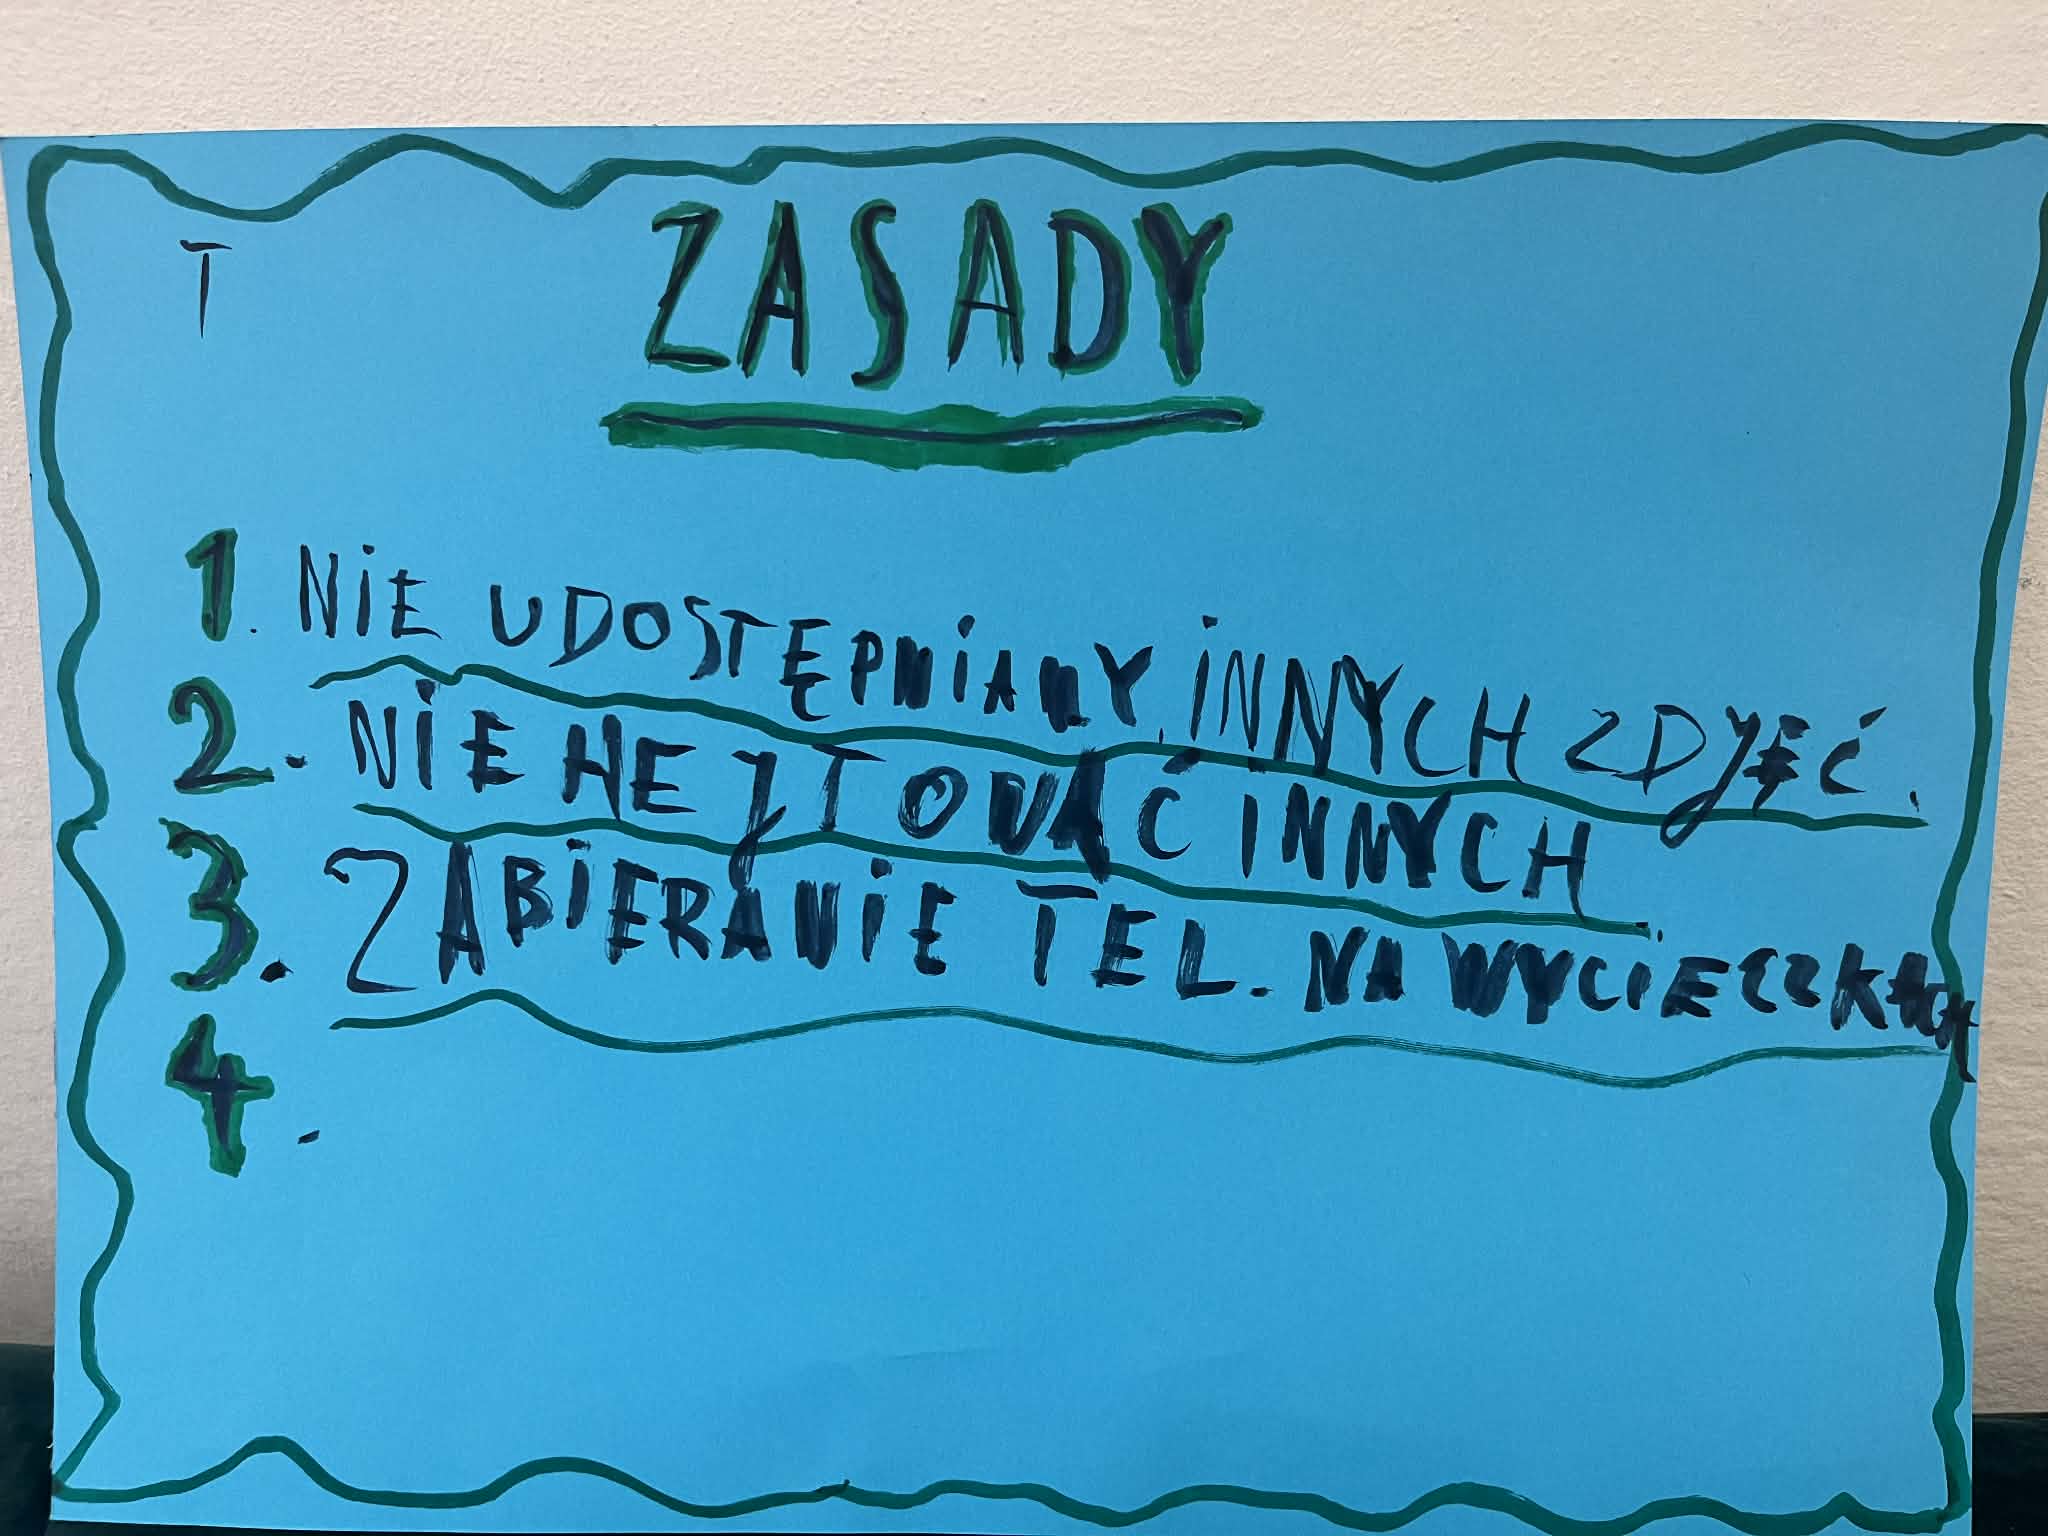 T
ZASADY
1. NIE UDOSTĘPNIAMY INNYCH ZDJĘĆ.
2. NIE HEJTOWAĆ INNYCH.
3. ZABIERANIE TEL. NA WYCIECZKACH
4.